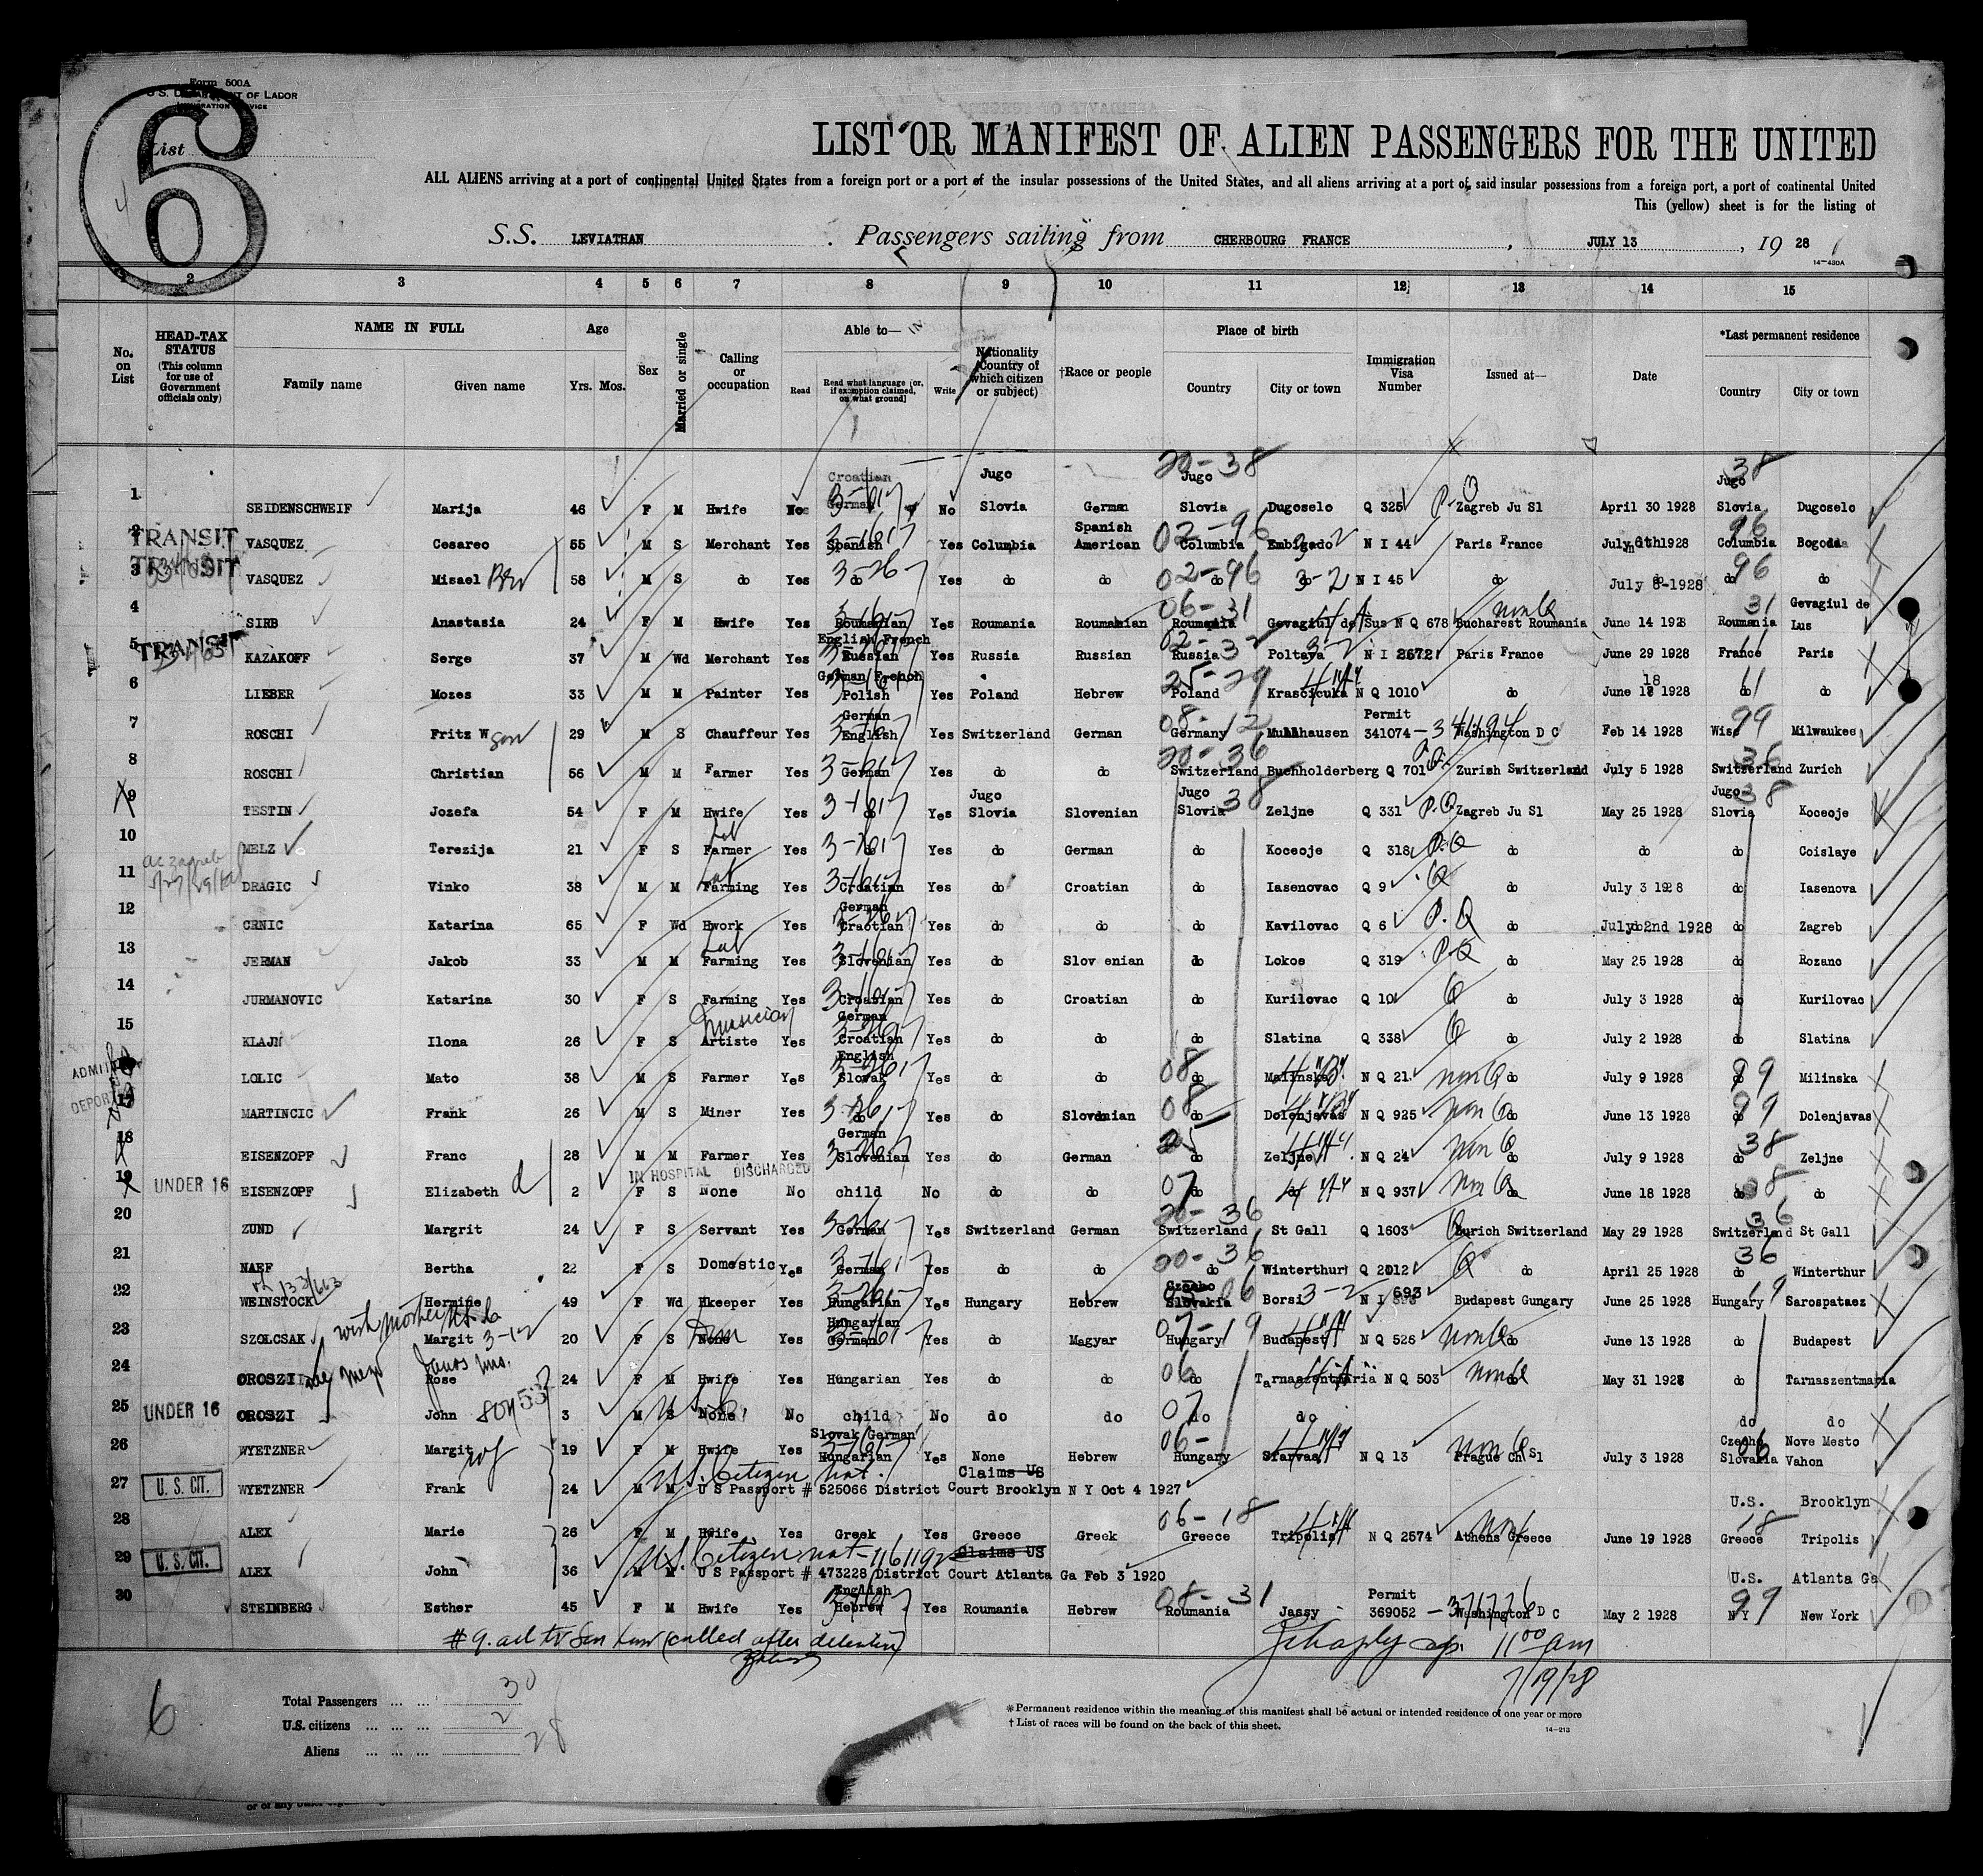 Form 500A
U.S. DEPARTMENT OF LABOR
IMMIGRATION SERVICE
List
6
4
LIST OR MANIFEST OF ALIEN PASSENGERS FOR THE UNITED
ALL ALIENS arriving at a port of continental United States from a foreign port or a port of the insular possessions of the United States, and all aliens arriving at a port of said insular possessions from a foreign port, a port of continental United
This (yellow) sheet is for the listing of
S.S. LEVIATHAN Passengers sailing from CHERBOURG FRANCE , JULY 13 , 19 28
14-430A
2 3 4 5 6 7 8 9 10 11 12 13 14 15
No. on List
HEAD-TAX STATUS (This column for use of Government officials only)
NAME IN FULL Family name Given name
Age Yrs. Mos.
Sex
Married or single
Calling or occupation
Able to— Read Read what language [or, if exemption claimed, on what ground] Write
Nationality (Country of which citizen or subject)
†Race or people
Place of birth Country City or town
Immigration Visa Number
Issued at—
Date
*Last permanent residence Country City or town
1 SEIDENSCHWEIF Marija 46 F M Hwife No Croatian German No Jugo Slovia German 20-38 Jugo Slovia Dugoselo Q 325 P.Q Zagreb Ju Sl April 30 1928 38 Jugo Slovia Dugoselo
2 TRANSIT VASQUEZ Cesareo 55 M S Merchant Yes Spanish Yes Columbia Spanish American 02-96 Columbia Embigado N I 44 Paris France 1928 96 Columbia Bogota
3 TRANSIT VASQUEZ Misael Bro 58 M S do Yes 3-26 do Yes do do 02-96 do 3-2 do N I 45 do July 8-1928 96 do do
4 SIRB Anastasia 24 F M Hwife Yes Roumanian Yes Roumania Roumanian 06-31 Roumania Gevagiul de Sus N Q 678 non Q Bucharest Roumania June 14 1928 31 Roumania Gevagiul de Lus
5 TRANSIT KAZAKOFF Serge 37 M Wd Merchant Yes English French Russian Yes Russia Russian 02-32 Russia Poltava 3-2 N I 2672 Paris France June 29 1928 11 France Paris
6 LIEBER Mozes 33 M M Painter Yes German French Polish Yes Poland Hebrew 25-29 Poland Krascicuka N Q 1010 do June 18 1928 11 do do
7 ROSCHI Fritz W son 29 M S Chauffeur Yes German English Yes Switzerland German 08-12 Germany Mullhausen Permit 341074 - 341194 Washington D C Feb 14 1928 99 Wisc Milwaukee
8 ROSCHI Christian 56 M M Farmer Yes German Yes do do 20-36 Switzerland Buchholderberg Q 701 Zurish Switzerland July 5 1928 36 Switzerland Zurich
9 TESTIN Jozefa 54 F M Hwife Yes do Yes Jugo Slovia Slovenian Jugo Slovia 38 Zeljne Q 331 P.Q Zagreb Ju Sl May 25 1928 Jugo Slovia 38 Koceoje
10 MELZ Terezija 21 F S Farmer Yes do Yes do German do Koceoje Q 318 P.Q do do do Coislaye
11 DRAGIC Vinko 38 M M Farming Yes Croatian Yes do Croatian do Iasenovac Q 9 Q do July 3 1928 do Iasenova
12 CRNIC Katarina 65 F Wd Hwork Yes German Craotian Yes do do do Kavilovac Q 6 P.Q do July 2nd 1928 do Zagreb
13 JERMAN Jakob 33 M M Farming Yes Slovenian Yes do Slov enian do Lokoe Q 319 P.Q do May 25 1928 do Rozanc
14 JURMANOVIC Katarina 30 F S Farming Yes Croatian Yes do Croatian do Kurilovac Q 10 Q do July 3 1928 do Kurilovac
15 KLAJN Ilona 26 F S musician Artiste Yes German Croatian Yes do do do Slatina Q 338 Q do July 2 1928 do Slatina
ADMITTED LOLIC Mato 38 M S Farmer Yes English Slovak Yes do do 08 do Malinska N Q 21 non Q do July 9 1928 99 do Milinska
17 MARTINCIC Frank 26 M S Miner Yes do Yes do Slovenian 08 do Dolenjavas N Q 925 non Q do June 13 1928 99 do Dolenjavas
18 EISENZOPF Franc 28 M M Farmer Yes German Slovenian Yes do German 25 do Zeljne N Q 24 non Q do July 9 1928 38 do Zeljne
IN HOSPITAL DISCHARGED
19 UNDER 16 EISENZOPF Elizabeth d 2 F S None No child No do do 07 do do N Q 937 non Q do June 18 1928 do do
20 ZUND Margrit 24 F S Servant Yes German Yes Switzerland German 20-36 Switzerland St Gall Q 1603 Q Zurich Switzerland May 29 1928 36 Switzerland St Gall
21 NAEF Bertha 22 F S Domestic Yes German Yes do do 20-36 do Winterthur Q 2012 Q do April 25 1928 36 do Winterthur
22 WEINSTOCK Hermine 49 F Wd Hkeeper Yes Hungarian Yes Hungary Hebrew Czecho Slovakia 06 Borsi 3-2 N I 693 Budapest Gungary June 25 1928 19 Hungary Sarospataez
23 SZOLCSAK with mother Margit 3-12 20 F S None Yes Hungarian German Yes do Magyar 07-19 Hungary Budapest N Q 526 non Q do June 13 1928 do Budapest
24 OROSZI Rose 24 F M Hwife Yes Hungarian Yes do do 06 do Tarnaszentmaria N Q 503 non Q do May 31 1928 do Tarnaszentmaria
25 UNDER 16 OROSZI John 3 M S None No child No do do 07 do do do do
26 WYETZNER Margit wf 19 F M Hwife Yes Slovak German Hungarian Yes None Hebrew 06- Hungary Sfarvas N Q 13 non Q Prague Ch Sl July 3 1928 06 Czecho Slovakia Nove Mesto Vahon
27 U. S. CIT. WYETZNER Frank 24 M M U.S. Citizen nat. Claims US U S Passport # 525066 District Court Brooklyn N Y Oct 4 1927 U.S. Brooklyn
28 ALEX Marie 26 F M Hwife Yes Greek Yes Greece Greek 06-18 Greece Tripolis N Q 2574 Athens Greece June 19 1928 18 Greece Tripolis
29 U. S. CIT. ALEX John 36 M M U.S. Citizen nat - 1161192 Claims US U S Passport # 473228 District Court Atlanta Ga Feb 3 1920 U.S. Atlanta Ga
30 STEINBERG Esther 45 F M Hwife Yes English Hebrew Yes Roumania Hebrew 08-31 Roumania Jassy Permit 369052 - 371726 Washington D C May 2 1928 99 N Y New York
#9. ad to son (called after detention)
11 00 am
7/19/28
6
Total Passengers ... ... 30
U.S. citizens ... ... ... 2
Aliens ... ... ... 28
*Permanent residence within the meaning of this manifest shall be actual or intended residence of one year or more
†List of races will be found on the back of this sheet.
14-213